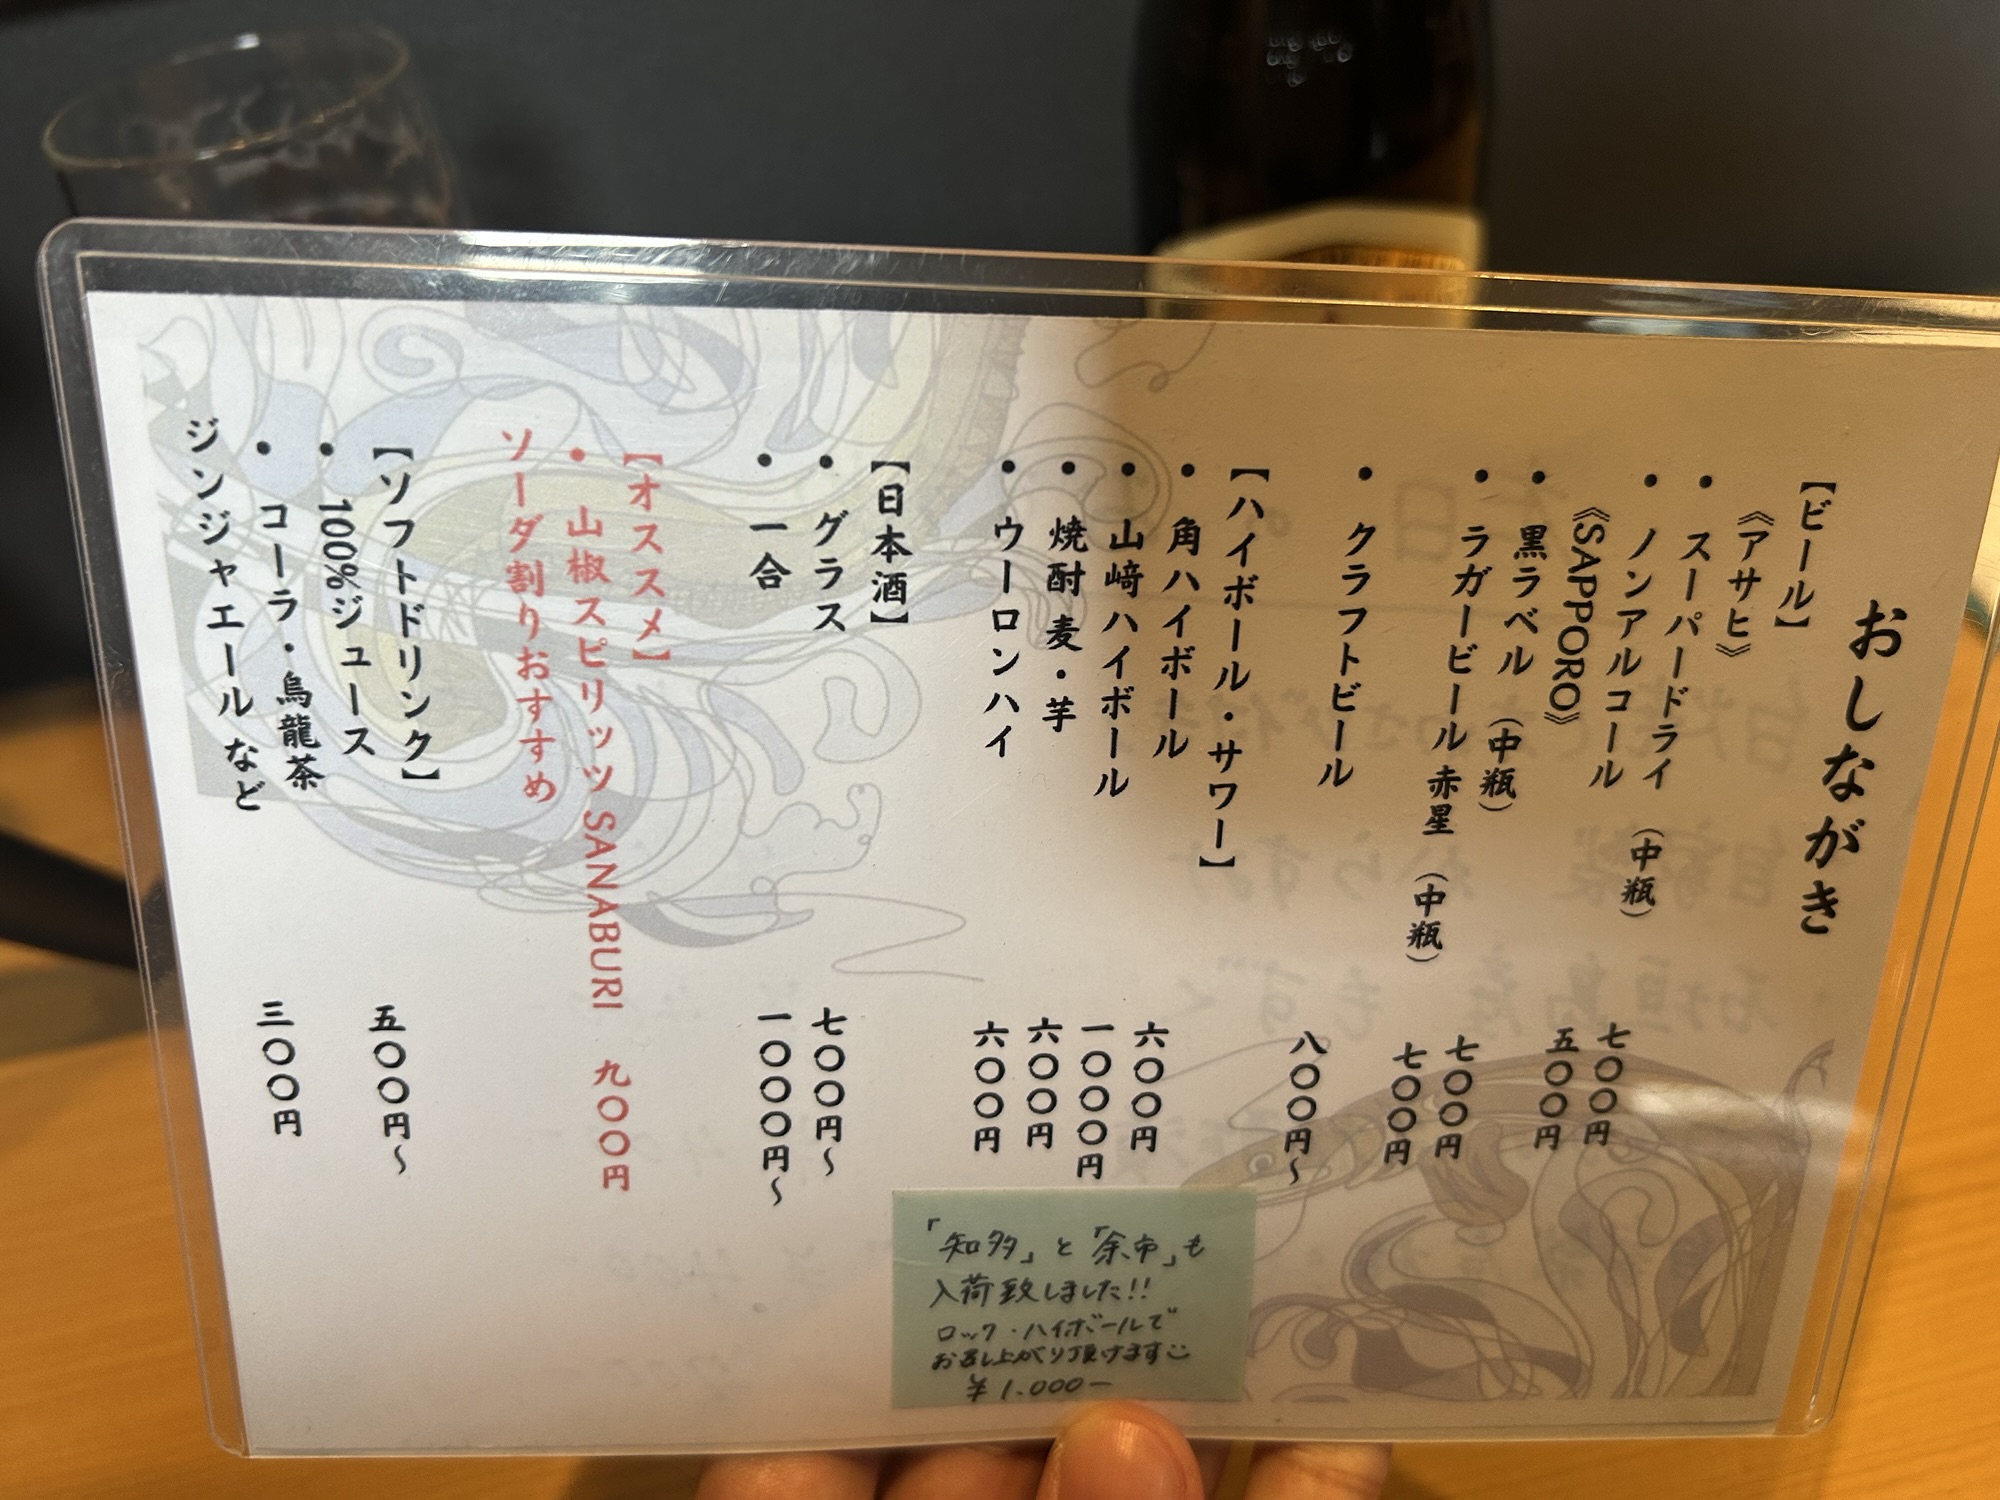 おしながき
【ビール】
《アサヒ》
・スーパードライ（中瓶） 七〇〇円
・ノンアルコール 五〇〇円
《SAPPORO》
・黒ラベル（中瓶） 七〇〇円
・ラガービール 赤星（中瓶） 七〇〇円
・クラフトビール 八〇〇円～
【ハイボール・サワー】
・角ハイボール 六〇〇円
・山﨑ハイボール 一〇〇〇円
・焼酎 麦・芋 六〇〇円
・ウーロンハイ 六〇〇円
【日本酒】
・グラス 七〇〇円～
・一合 一〇〇〇円～
【オススメ】
・山椒スピリッツ SANABURI 九〇〇円
ソーダ割りおすすめ
【ソフトドリンク】
・100%ジュース 五〇〇円～
・コーラ・烏龍茶
ジンジャエールなど 三〇〇円
「知多」と「余市」も
入荷致しました!!
ロック・ハイボールで
お召し上がり頂けます
¥1.000ー